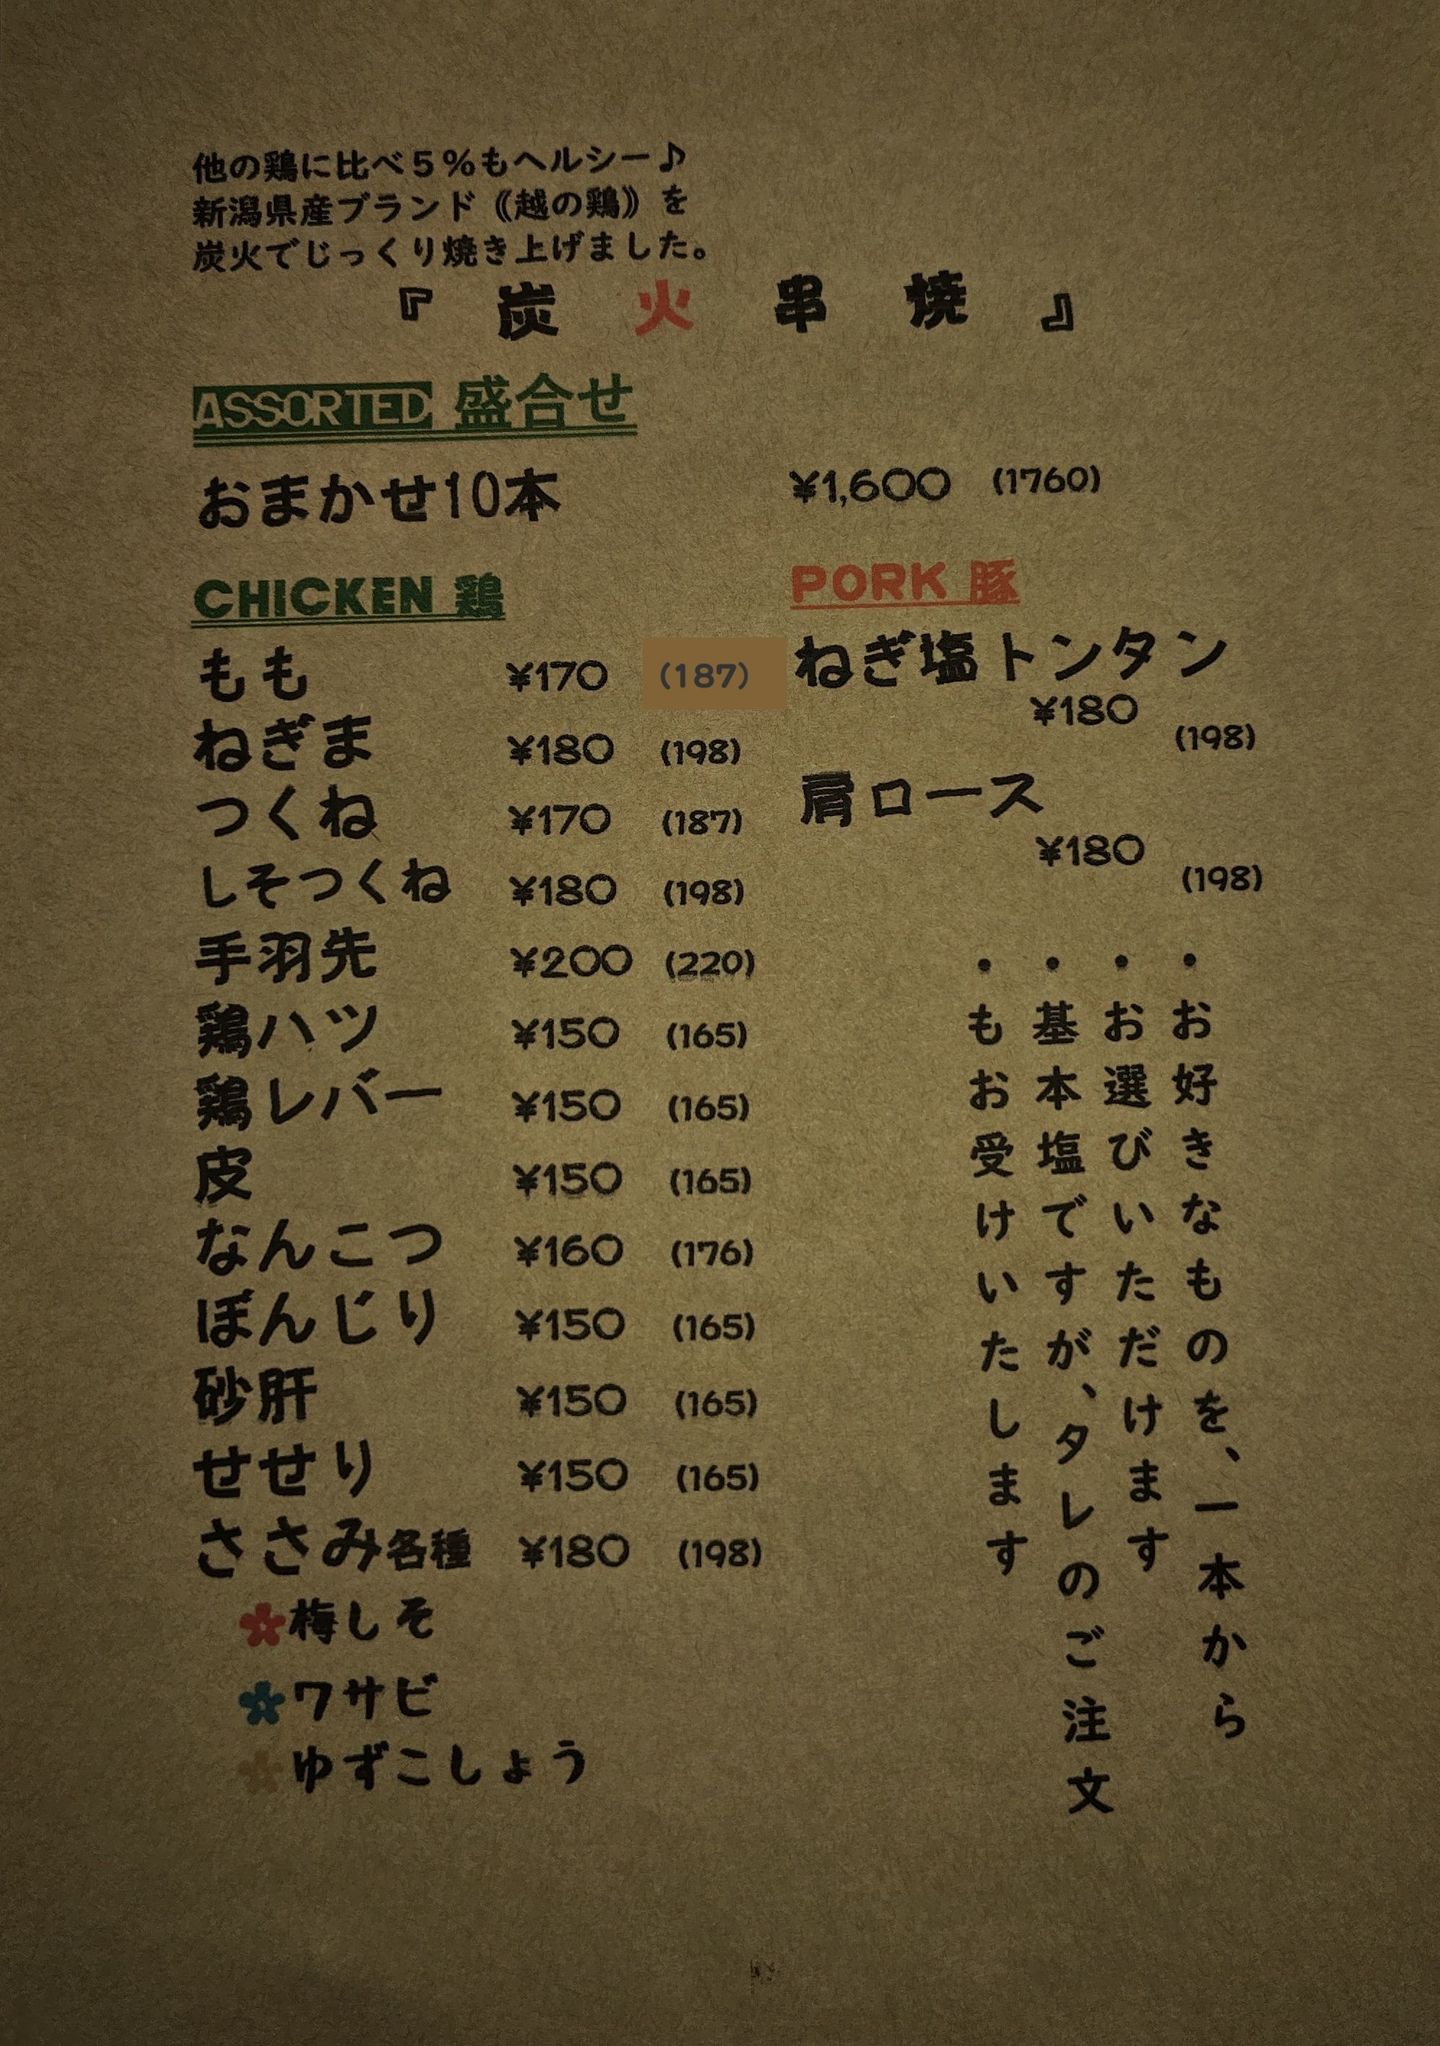 他の鶏に比べ５％もヘルシー♪
新潟県産ブランド《越の鶏》を
炭火でじっくり焼き上げました。
『炭火串焼』
ASSORTED 盛合せ
おまかせ10本 ¥1,600 (1760)
CHICKEN 鶏
もも ¥170 (187)
ねぎま ¥180 (198)
つくね ¥170 (187)
しそつくね ¥180 (198)
手羽先 ¥200 (220)
鶏ハツ ¥150 (165)
鶏レバー ¥150 (165)
皮 ¥150 (165)
なんこつ ¥160 (176)
ぼんじり ¥150 (165)
砂肝 ¥150 (165)
せせり ¥150 (165)
ささみ各種 ¥180 (198)
梅しそ
ワサビ
ゆずこしょう
PORK 豚
ねぎ塩トンタン
¥180 (198)
肩ロース
¥180 (198)
・お好きなものを、一本から
・お選びいただけます
・基本塩ですが、タレのご注文
・もお受けいたします